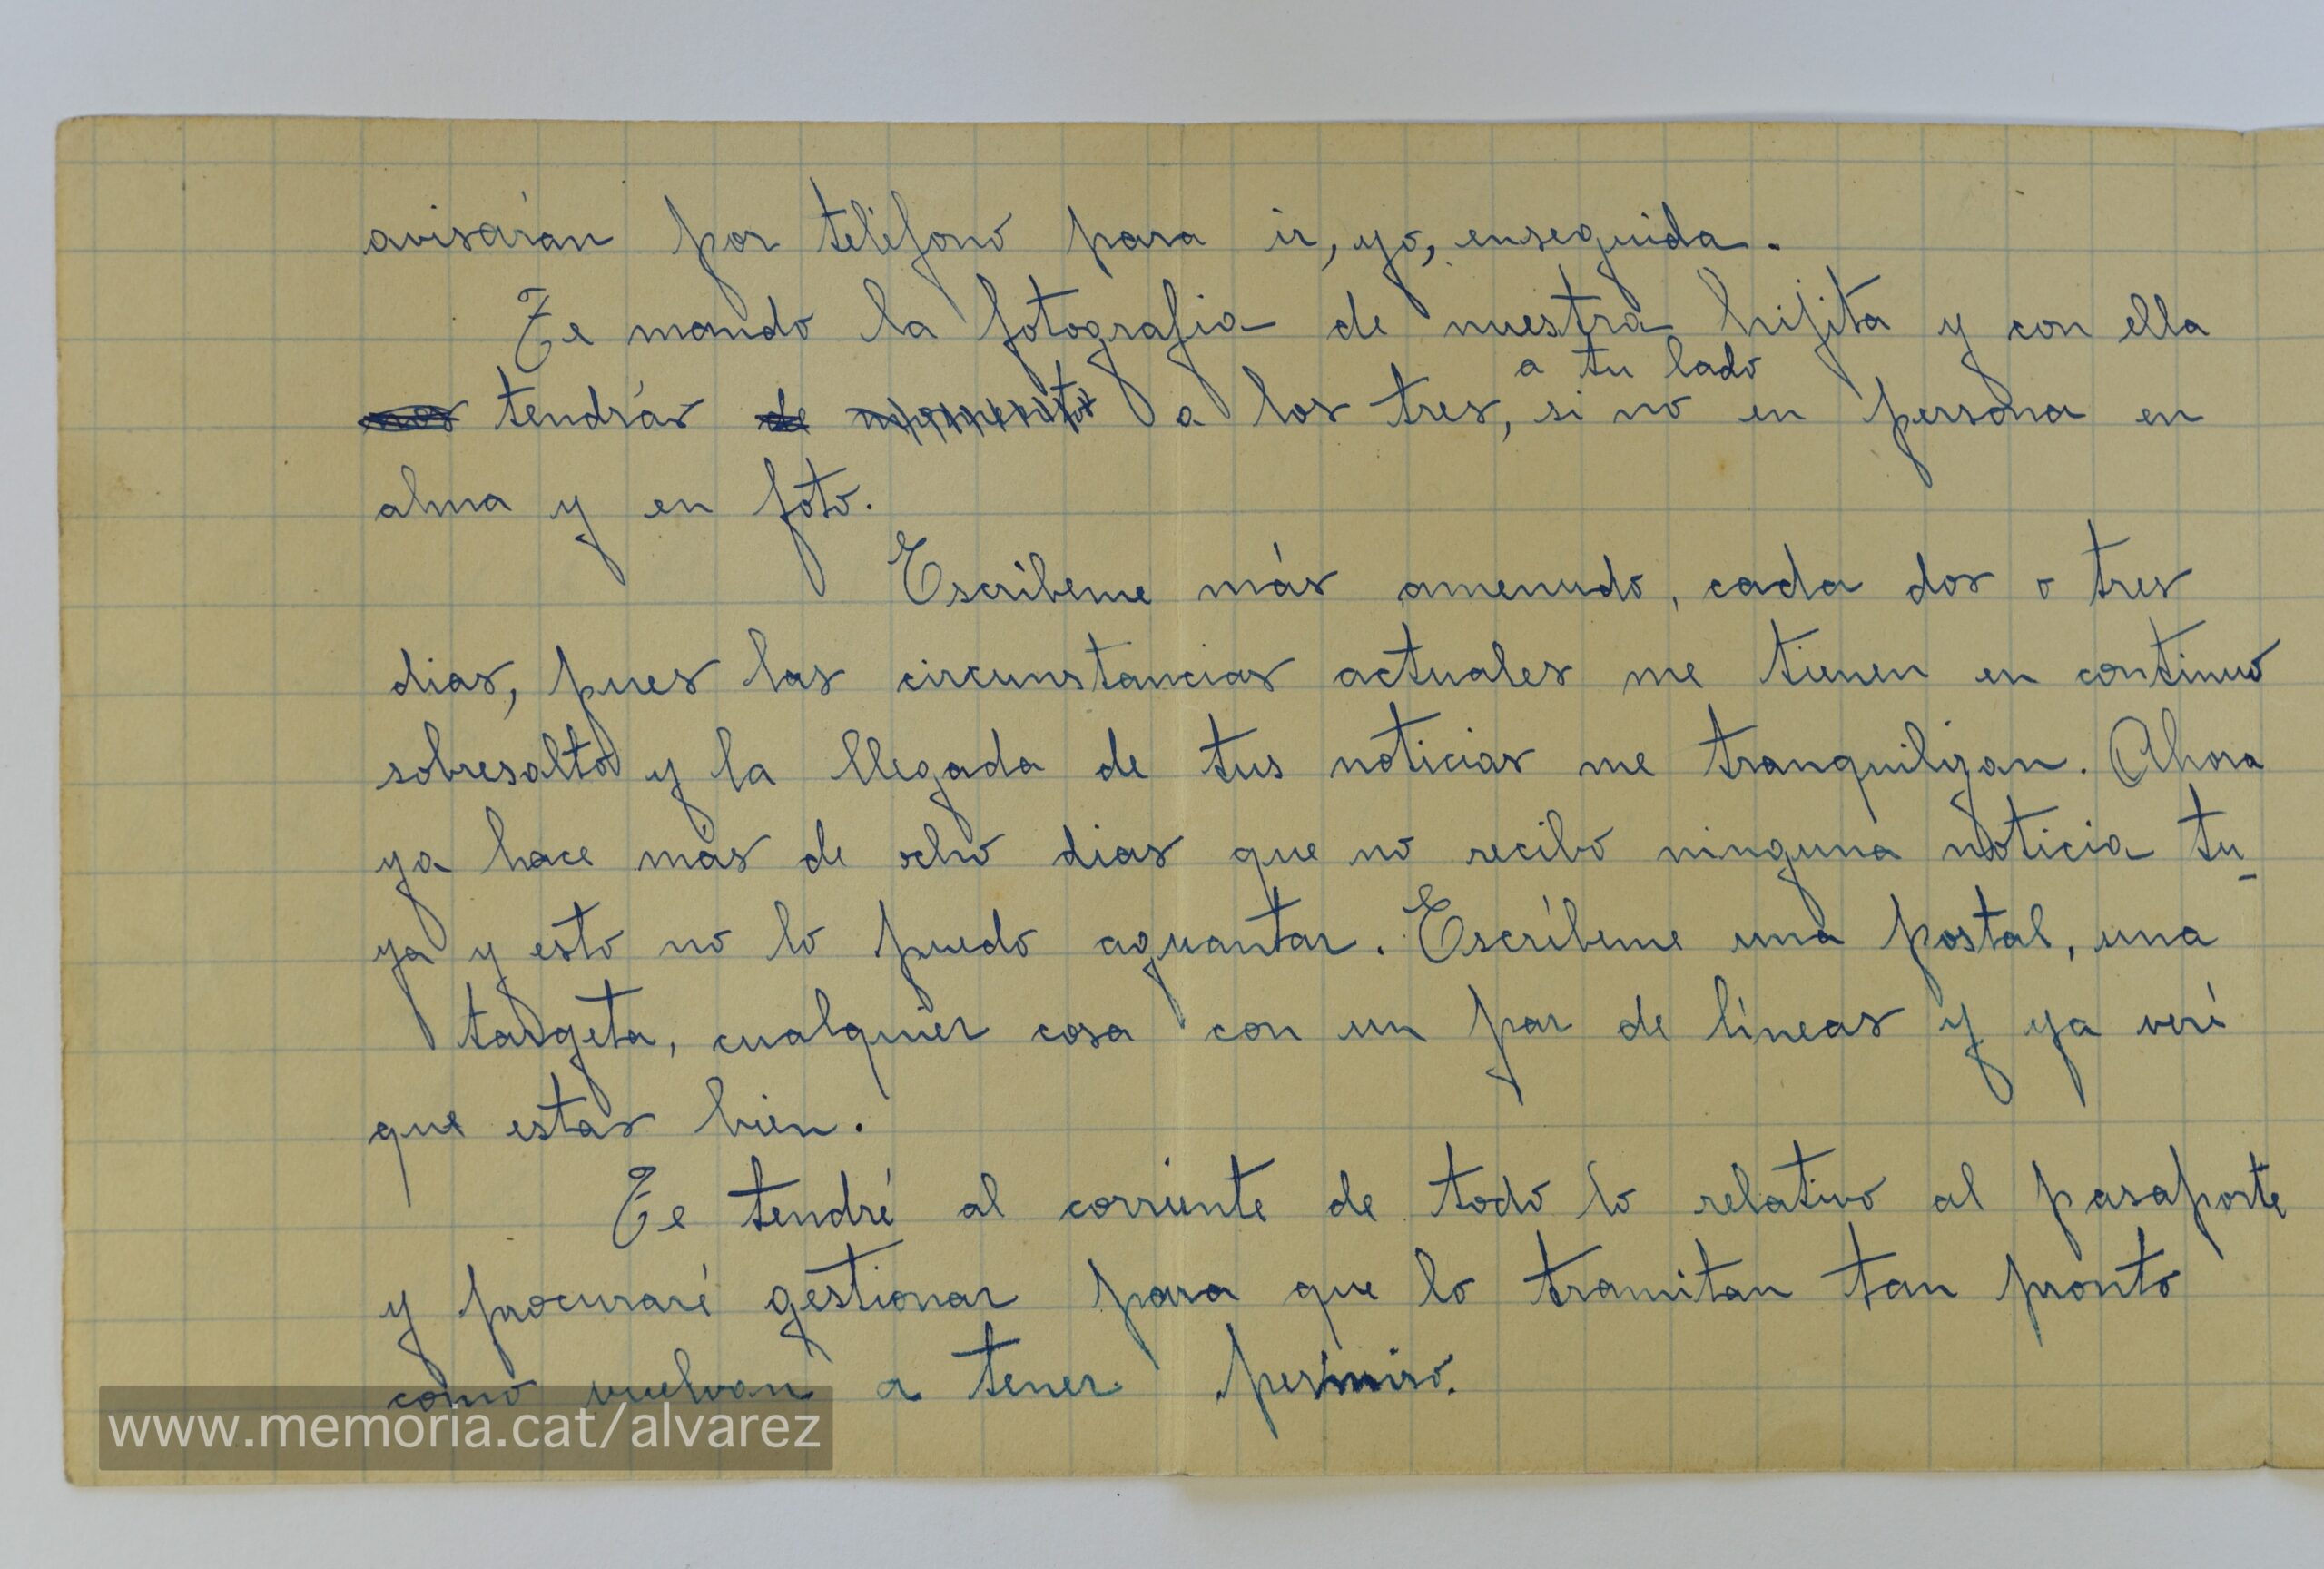 avisarán por teléfono para ir, yo, enseguida.
Te mando la fotografia de nuestra hijita y con ella
a tu lado
nos tendrás de momento a los tres, si no en persona en
alma y en foto.
Escribeme más amenudo, cada dos o tres
dias, pues las circunstancias actuales me tienen en continuo
sobresalto y la llegada de tus noticias me tranquilizan. Ahora
ya hace más de ocho dias que no recibo ninguna noticia tu-
ya y esto no lo puedo aguantar. Escríbeme una postal, una
targeta, cualquier cosa con un par de líneas y ya veré
que estas bien.
Te tendré al corriente de todo lo relativo al pasaporte
y procuraré gestionar para que lo tramitan tan pronto
como vuelvan a tener permiso.
www.memoria.cat/alvarez